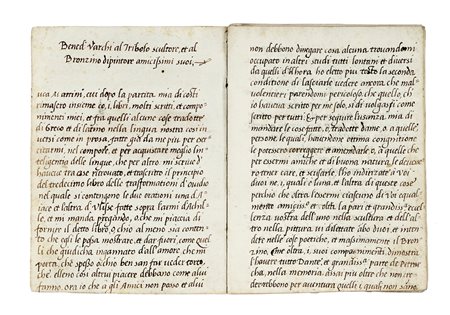 Bened. Varchi al Tribolo scultore, et al
Bronzino dipintore amicissimi suoi.
Luca Martini, cui dopo la partita mia di costì
rimasero insieme co i libri, molti scritti, et compo-
nimenti miei, et fra quelli alcune cose tradotte
di Greco et di latino nella lingua nostra così in
versi come in prosa, fatte già da me più per eser
citarmi, nel comporre, et per acquistare meglio in-
telligentia delle lingue, che per altro mi scrive d'
havere tra esse ritrovato, et trascritto il principio
del tredecimo libro delle trasformationi d'Ovidio
nel quale si contengono le due orationi una d'A-
iace et l'altra d'Ulisse fatte sopra l'armi d'Achil-
le, et mi manda pregando, o che mi piaccia di
fornire il detto libro, o ch'io al meno sia conten-
to che egli le possa mostrare, et dar fuori, come quel
li che giudicha, ingannato dall'amore che mi
porta che spesso occhio ben san fa veder torto,
che elleno così altrui piacere debbano come a lui
fanno, ora io che a gli Amici non posso et a lui
non debbono dinegare cosa alcuna trovandomi
occupato in altri studi tanti lontani et diversi
da quelli d'allhora ho eletto più tosto la seconda
condizione di lasciarle vedere ancora, che mal
volentieri; parendomi pericoloso, che quello, ch'
io haveva scritto per me solo, si divolgasse come
scritto per tutti. E per seguire l'usanza mia di
mandare le cose fatte, o tradotte da me, o a quelle
persone, le quali, havendone ottima cognitione
le potessero correggere et amendarle o, a quelle che
per essermi amiche et di buona natura, le devesse-
ro tener care, et scusarle, l'ho indirizate a voi
duoi ne i quali e l'una, et l'altra di queste cose
perchè oltra l'essermi ciascuno di voi equal-
mente amicissimo et oltra la pari et grandissima eccel
lenza vostra dell'uno nella scultura et dell'al
tro nella pittura, vi dilettate ambo duoi, et inten-
dete nelle cose poetiche, et massimamente il Bron
zino, che oltra i suoi componimenti, dimostra
l'havere tutto Dante, et grandissima parte del Petrar
cha, nella memoria. Assai più oltre che non cre-
derebbono per avventura quelli, i quali non sanno,